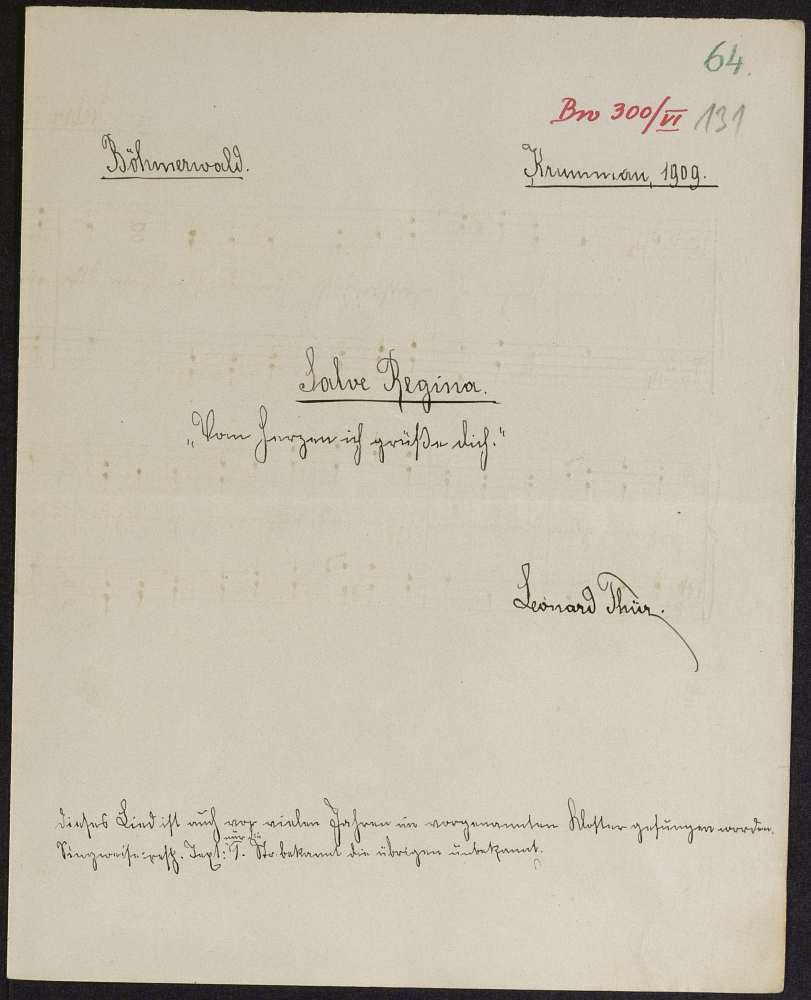 64.
Bw 300/VI 131
Böhmerwald.
Krummau, 1909.
Salve Regina.
„Vom Herzen ich grüße dich."
Leonard Thür.
Dieses Lied ist auch vor vielen Jahren im vorgenannten Kloster gesungen worden.
nur die
Singweise: resp. Text: 1. Str. bekannt die übrigen unbekannt.